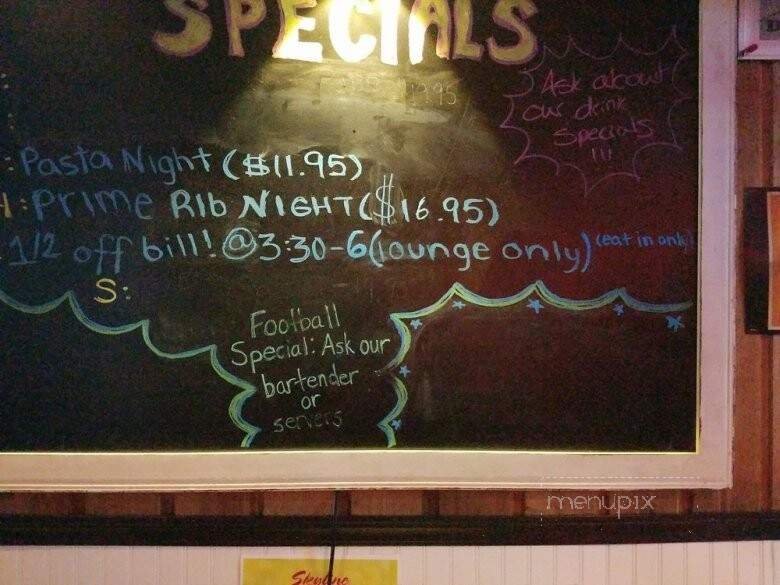 SPECIALS
Ask about
our drink
Specials
!!!
: Pasta Night ($11.95)
: Prime Rib NIGHT ($16.95)
1/2 off bill! @3:30-6 (lounge only) (eat in only)
S:
Football
Special: Ask our
bartender
or
servers
menupix
Skyline